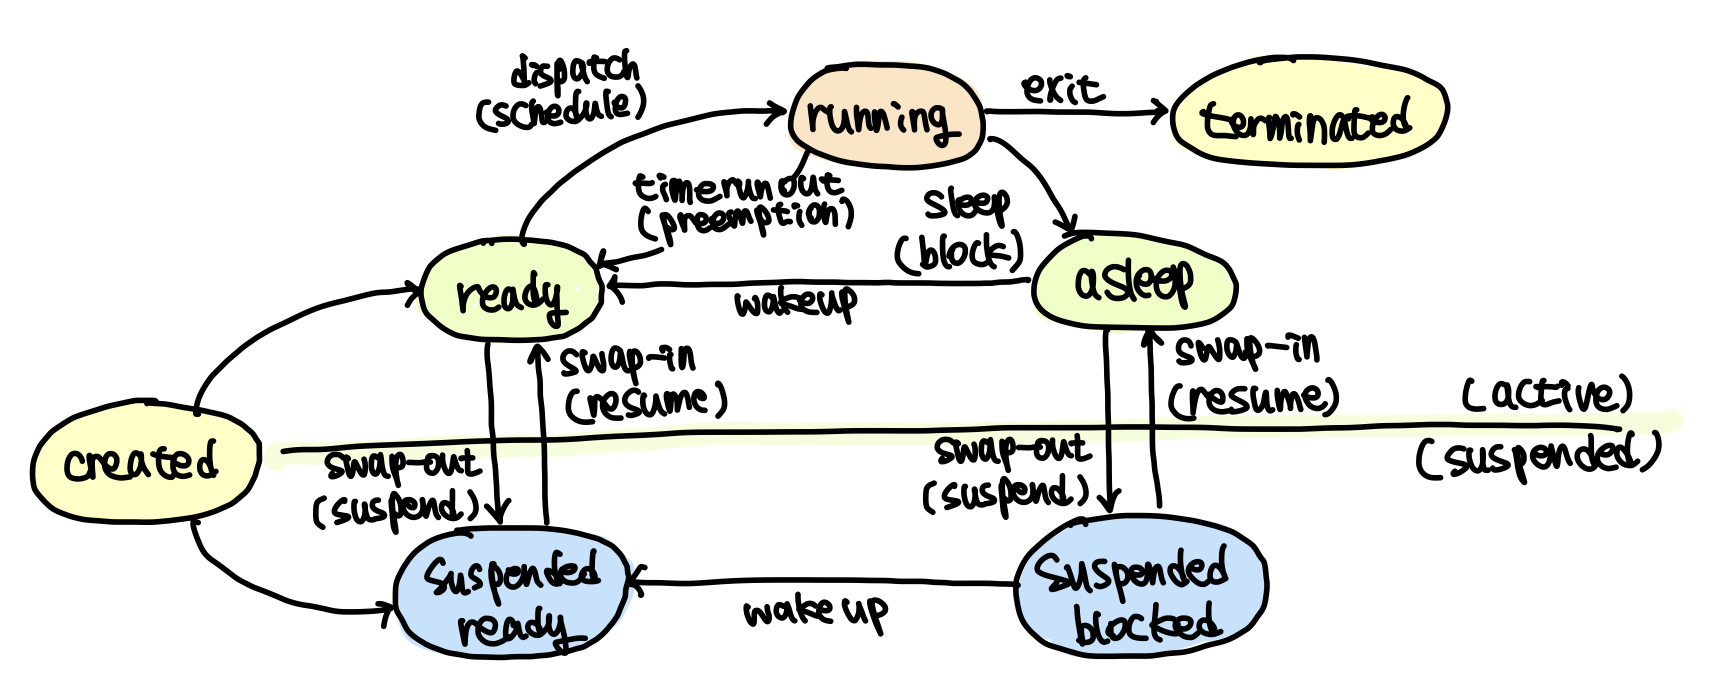 dispatch
(schedule)
running
exit
terminated
timerunout
(preemption)
sleep
(block)
ready
wakeup
asleep
swap-in
(resume)
swap-in
(resume)
(active)
created
swap-out
(suspend)
swap-out
(suspend)
(suspended)
suspended
ready
wake up
suspended
blocked